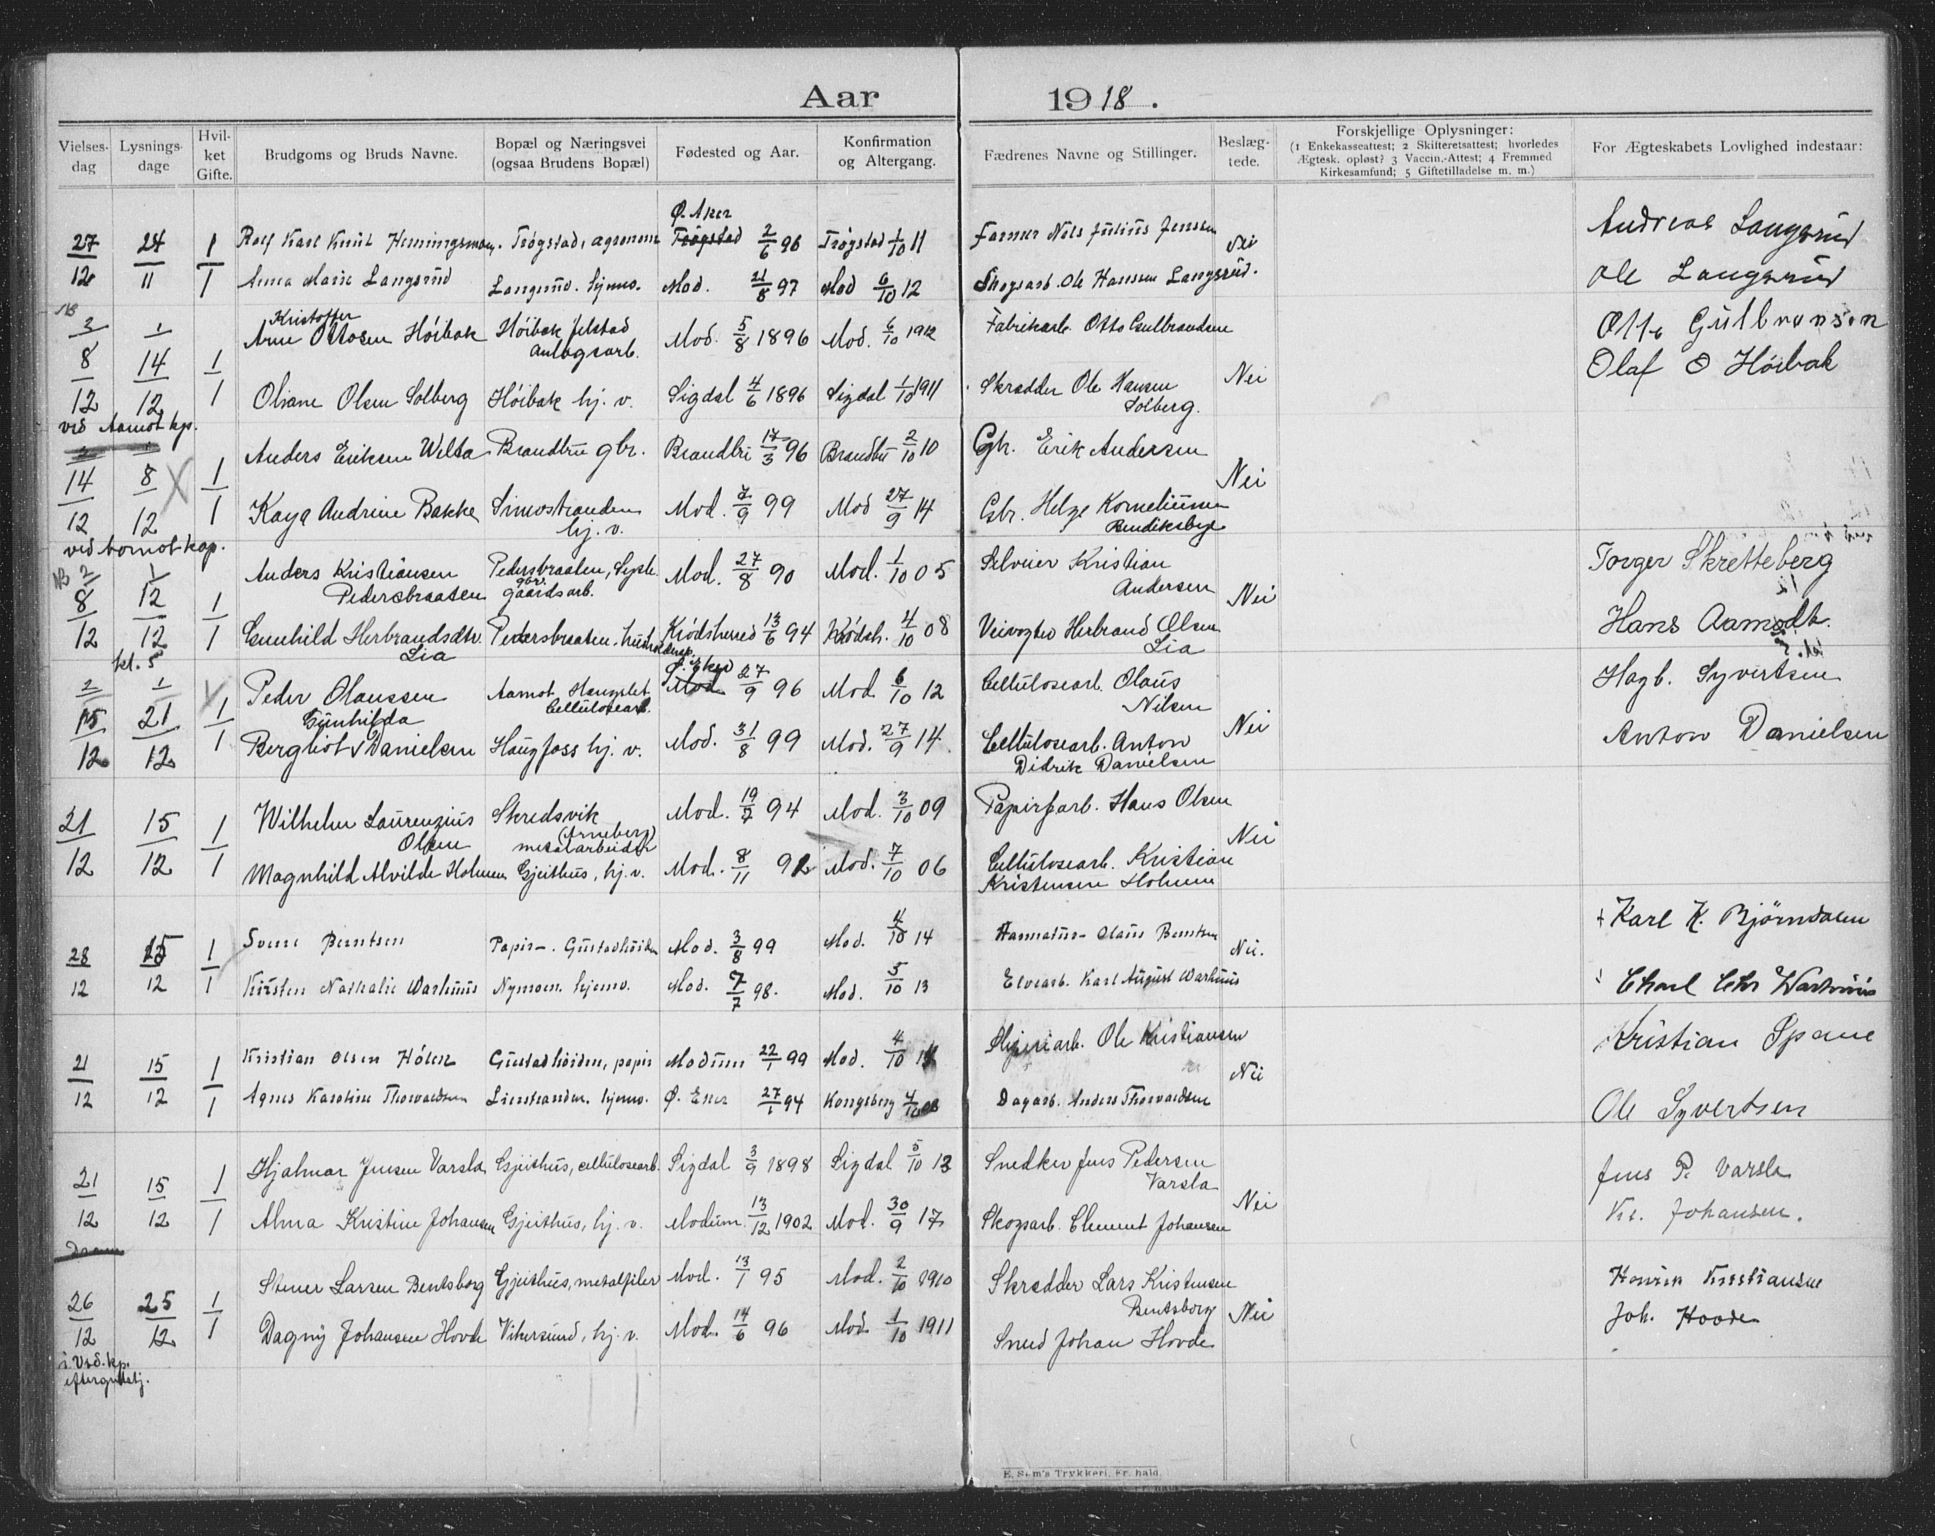 Aar 1918.
Vielses-dag | Lysnings-dage | Hvil-ket Gifte. | Brudgoms og Bruds Navne. | Bopæl og Næringsvei (ogsaa Brudens Bopæl) | Fødested og Aar. | Konfirmation og Altergang. | Fædrenes Navne og Stillinger. | Beslæg-tede. | Forskjellige Oplysninger: (1 Enkekasseattest; 2 Skifteretsattest; hvorledes Ægtesk. opløst? 3 Vaccin.-Attest; 4 Fremmed Kirkesamfund; 5 Giftetilladelse m. m.) | For Ægteskabets Lovlighed indestaar:
Ø. Aker
27/12 24/11 1/1 Rolf Karl Knut Henningsmoen, Trøgstad, agronom Trøgstad 2/6 96 Trøgstad 1/10 11 Farmer Nils Julius Jenssen Nei Andreas Langsrud
Anna Marie Langsrud Langsrud. hjemv. Mod. 21/8 97 Mod 6/10 12 Skogsarb. Ole Hanssen Langsrud. Ole Langsrud
NB
Kristoffer
Arne Ottosen Høibak Høibak jelstad Mod. 5/8 1896 Mod. 6/10 1912 Fabrikarb. Otto Gulbrandsen Otto Gulbransen
Anlægsarb.
8/12 14/12 1/1 Nei Olaf O Høibak
Olsane Olsen Solberg Høibak hj. v. Sigdal 4/6 1896 Sigdal 1/10 1911 Skrædder Ole Hansen
Solberg.
ved Aamot kp.
Anders Eriksen Velta Brandbu gbr. Brandbu 17/3 96 Brandbu 2/10 10 Gbr. Erik Andersen
14/12 8/12 1/1 Nei
Kaya Andrine Bakke Simostranden Mod. 7/9 99 Mod 27/9 14 Gbr. Helge Korneliussen
hj. v. Bendiksbye
ved Aamot kap.
NB Anders Kristiansen Pedersbraaten, Sysle Mod. 27/8 90 Mod. 1/10 05 Selveier Kristian Torger Skretteberg
Pedersbraaten gbr. gaardsarb. Andersen
8/12 12/12 1/1 Nei
Gunhild Herbrandsdtr. Pedersbraaten. Krødsherred 13/6 94 Krødsh. 4/10 08 Veivogter Herbrand Olsen Hans Aamodt.
Lia Lia
kl. 5
Peder Olaussen Aamot Mod. 27/9 96 Mod. 6/10 12 Cellulosearb. Olaus Hagb. Syvertsen
Cellulosearb. Nilsen
Gunhilda
15/12 21/12 1/1 Nei
Bergliot Danielsen Haugfoss hj. v. Mod. 31/8 99 Mod. 27/9 14. Cellulosearb. Anton Anton Danielsen
Didrik Danielsen
Wilhelm Laurenzius Skredsvik Mod. 19/7 94 Mod. 3/10 09 Papirfarb. Hans Olsen
Olsen (Arneberg)
metalarbeider
21/12 15/12 1/1 Nei
Magnhild Alvilde Holmen Gjeithus, hj. v. Mod. 8/11 92 Mod. 7/10 06 Cellulosearb. Kristian
Kristensen Holmen
28/12 15/12 1/1 Sverre Berntsen Papir-. Gustadheiden Mod. 3/8 99 Mod. 4/10 14 Olaus Berntsen Nei. Karl K. Bjørndalen
Kirsten Nathalie Warhuus Nymoen. hjemv. Mod. 7/7 98. Mod. 5/10 13 Elvearb. Karl August Warhuus Charl Chr Warhuus
21/12 15/12 1/1 Kristian Olsen Hólen Gustadheiden, papir Modum 22/1 99 Mod. 4/10 14 Sliperiarb. Ole Kristiansen Nei Kristian Spane
Agnes Karoline Thorvaldsen Lierstranden. hjemv. Ø. Eker 27/1 94 Kongsberg 4/10 08 Dagarb. Anders Thorvaldsen Ole Syvertsen
21/12 15/12 1/1 Hjalmar Jensen Varsla Gjeithus, cellulosearb. Sigdal 3/9 1898 Sigdal 5/10 13 Snedker Jens Pedersen Jens P. Varsla
Varsla
Nei
Alma Kristine Johansen Gjeithus, hj. v. Modum 13/12 1902 Mod. 30/9 17 Skogsarb. Clement Johansen Kr. Johansen.
26/12 25/12 1/1 Stener Larsen Bentsborg Gjeithus, metalfiler Mod. 13/1 95 Mod. 2/10 1910 Skrædder Lars Kristensen Henrik Kristiansen
Bentsborg
Nei
Dagny Johansen Hovde Vikersund, hj. v. Mod. 14/6 96 Mod. 1/10 1911 Sned Johan Hovde Joh. Hovde
i Vid. kp.
E. Sem's Trykkeri, Fr.hald.